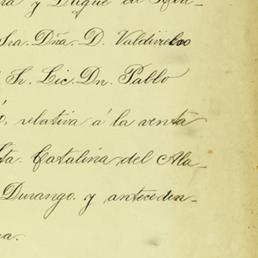 ra y Duque de Al-
Sra. Dña. D. Valdivielso
Sr. Lic. Dn. Pablo
o, relativa á la venta
ta. Catalina del Ala-
Durango. y anteceden-
na.